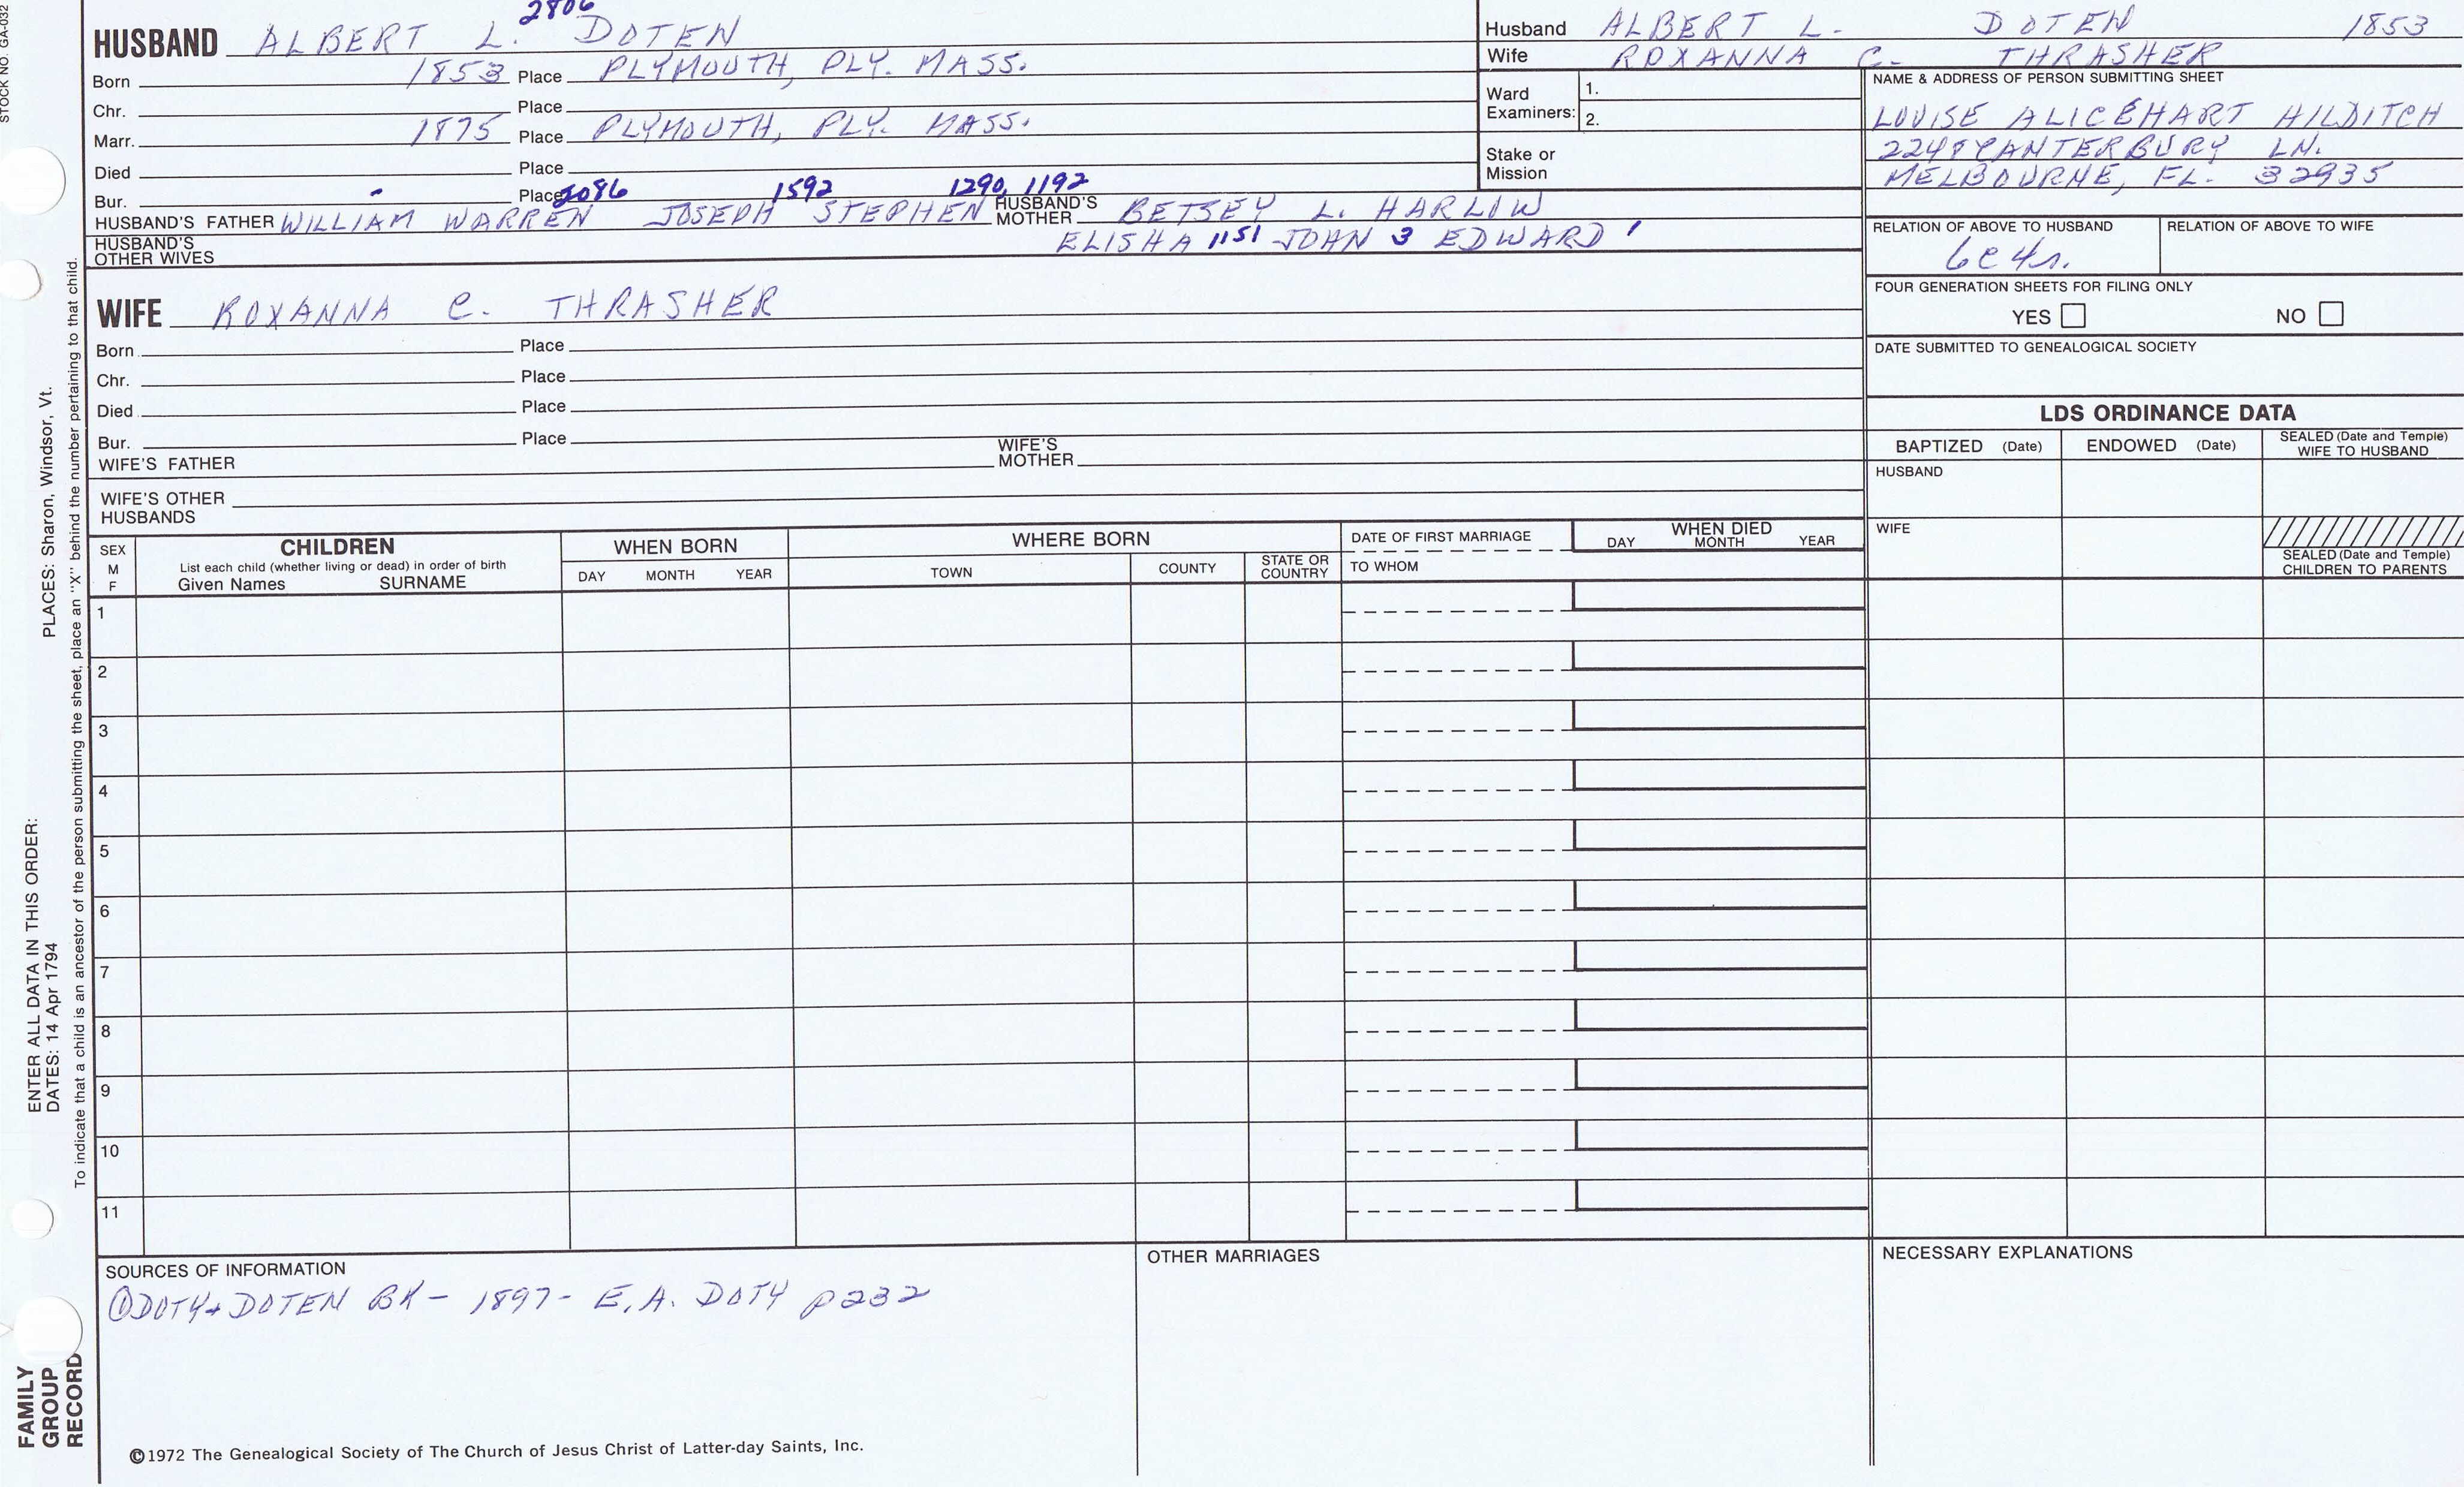 STOCK NO. GA-032
2806
HUSBAND ALBERT L. DOTEN
Born 1853 Place PLYMOUTH, PLY. MASS.
Chr. Place
Marr. 1875 Place PLYMOUTH, PLY. MASS.
Died Place
Bur. Place 2086 1592 1290, 1192
HUSBAND'S FATHER WILLIAM WARREN JOSEPH STEPHEN HUSBAND'S MOTHER BETSEY L. HARLOW
HUSBAND'S OTHER WIVES ELISHA 1151 JOHN 3 EDWARD 1
Husband ALBERT L. DOTEN 1853
Wife ROXANNA C. THRASHER
Ward Examiners: 1.
2.
Stake or Mission
NAME & ADDRESS OF PERSON SUBMITTING SHEET
LOUISE ALICE HART HILDITCH
CANTERBURY LN.
MELBOURNE, FL. 32935
RELATION OF ABOVE TO HUSBAND RELATION OF ABOVE TO WIFE
6c4r.
FOUR GENERATION SHEETS FOR FILING ONLY
YES NO
DATE SUBMITTED TO GENEALOGICAL SOCIETY
WIFE ROXANNA C. THRASHER
Born Place
Chr. Place
Died Place
Bur. Place
WIFE'S FATHER WIFE'S MOTHER
WIFE'S OTHER HUSBANDS
LDS ORDINANCE DATA
BAPTIZED (Date) ENDOWED (Date) SEALED (Date and Temple) WIFE TO HUSBAND
HUSBAND
WIFE
SEALED (Date and Temple) CHILDREN TO PARENTS
SEX M F
CHILDREN
List each child (whether living or dead) in order of birth
Given Names SURNAME
WHEN BORN
DAY MONTH YEAR
WHERE BORN
TOWN COUNTY STATE OR COUNTRY
DATE OF FIRST MARRIAGE
TO WHOM
WHEN DIED
DAY MONTH YEAR
1
2
3
4
5
6
7
8
9
10
11
SOURCES OF INFORMATION
① DOTY + DOTEN BK - 1897 - E.A. DOTY p232
OTHER MARRIAGES
NECESSARY EXPLANATIONS
©1972 The Genealogical Society of The Church of Jesus Christ of Latter-day Saints, Inc.
FAMILY GROUP RECORD
ENTER ALL DATA IN THIS ORDER:
DATES: 14 Apr 1794 PLACES: Sharon, Windsor, Vt.
To indicate that a child is an ancestor of the person submitting the sheet, place an "X" behind the number pertaining to that child.